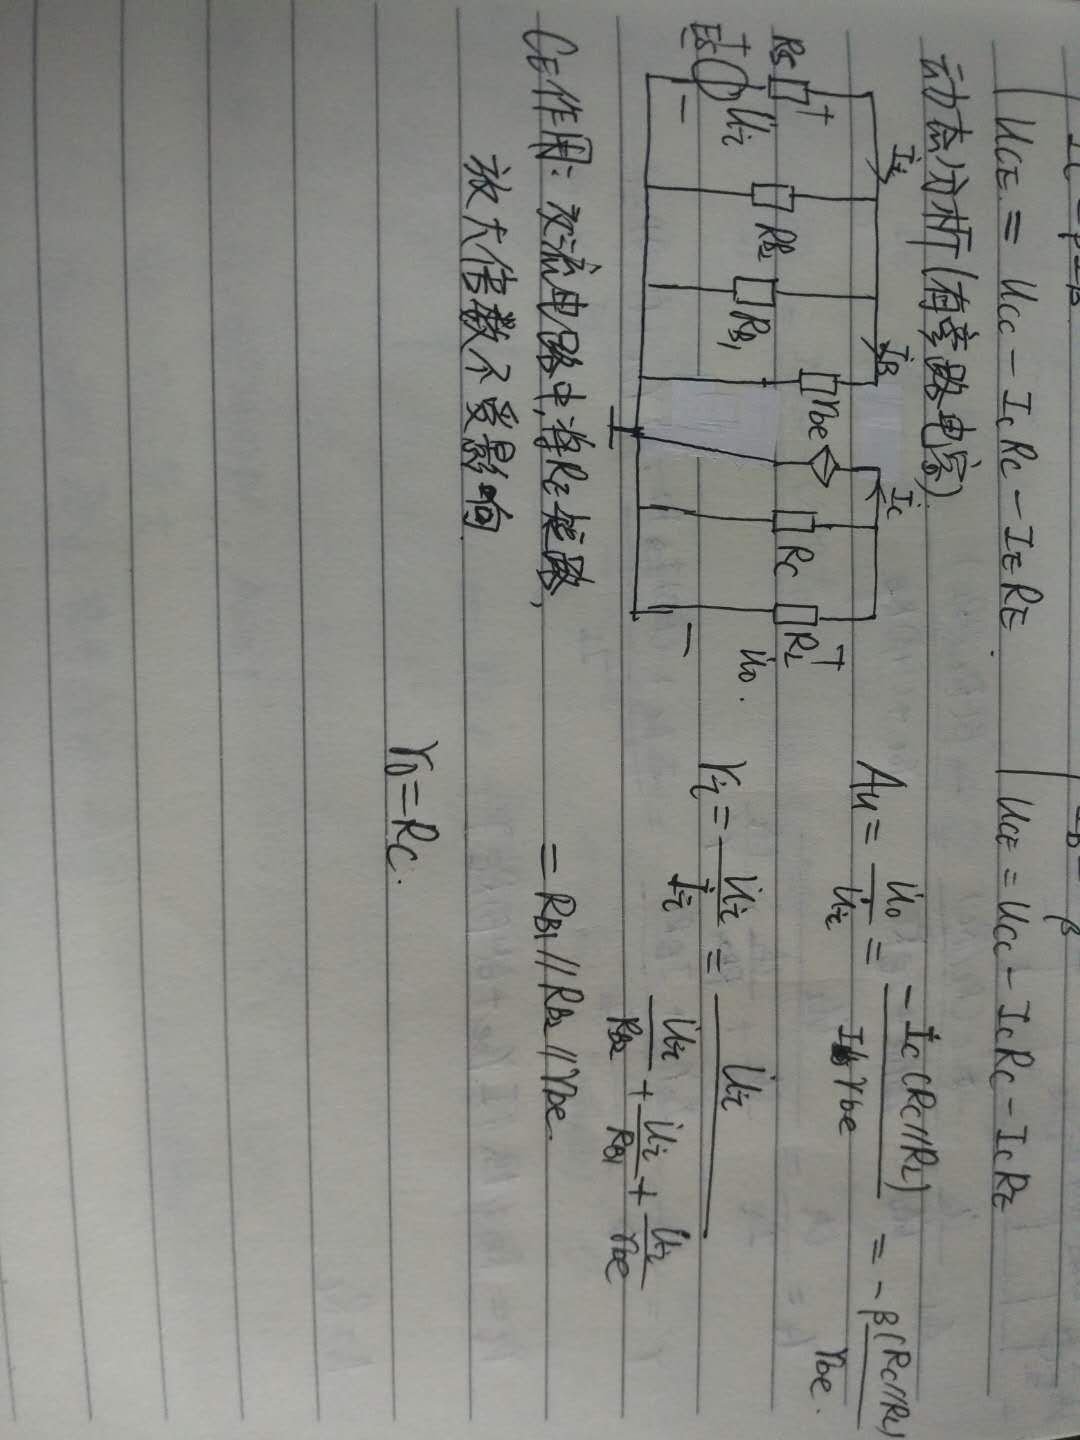 UCE = UCC - ICRC - IERE.
UCE = UCC - ICRC - ICRE
动态分析(有旁路电容)
RS
+
Ii
IB
IC
Es
+
Ui
-
RB2
RB1
rbe
RC
RL
+
U̇o.
-
Au = U̇o / U̇i = -İC(RC//RL) / Ib rbe = - β(RC//RL) / rbe.
ri = U̇i / İi = U̇i / (U̇i/RB2 + U̇i/RB1 + U̇i/rbe)
= RB1 // RB2 // rbe.
ro = RC.
CE作用: 交流电路中,将RE短路,
放大倍数不受影响